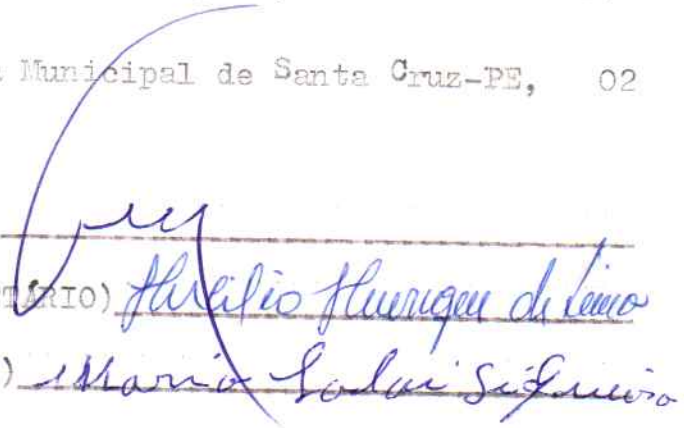 Municipal de Santa Cruz-PE, 02
TÁRIO) Henrique de Lima
) Maria Siqueira